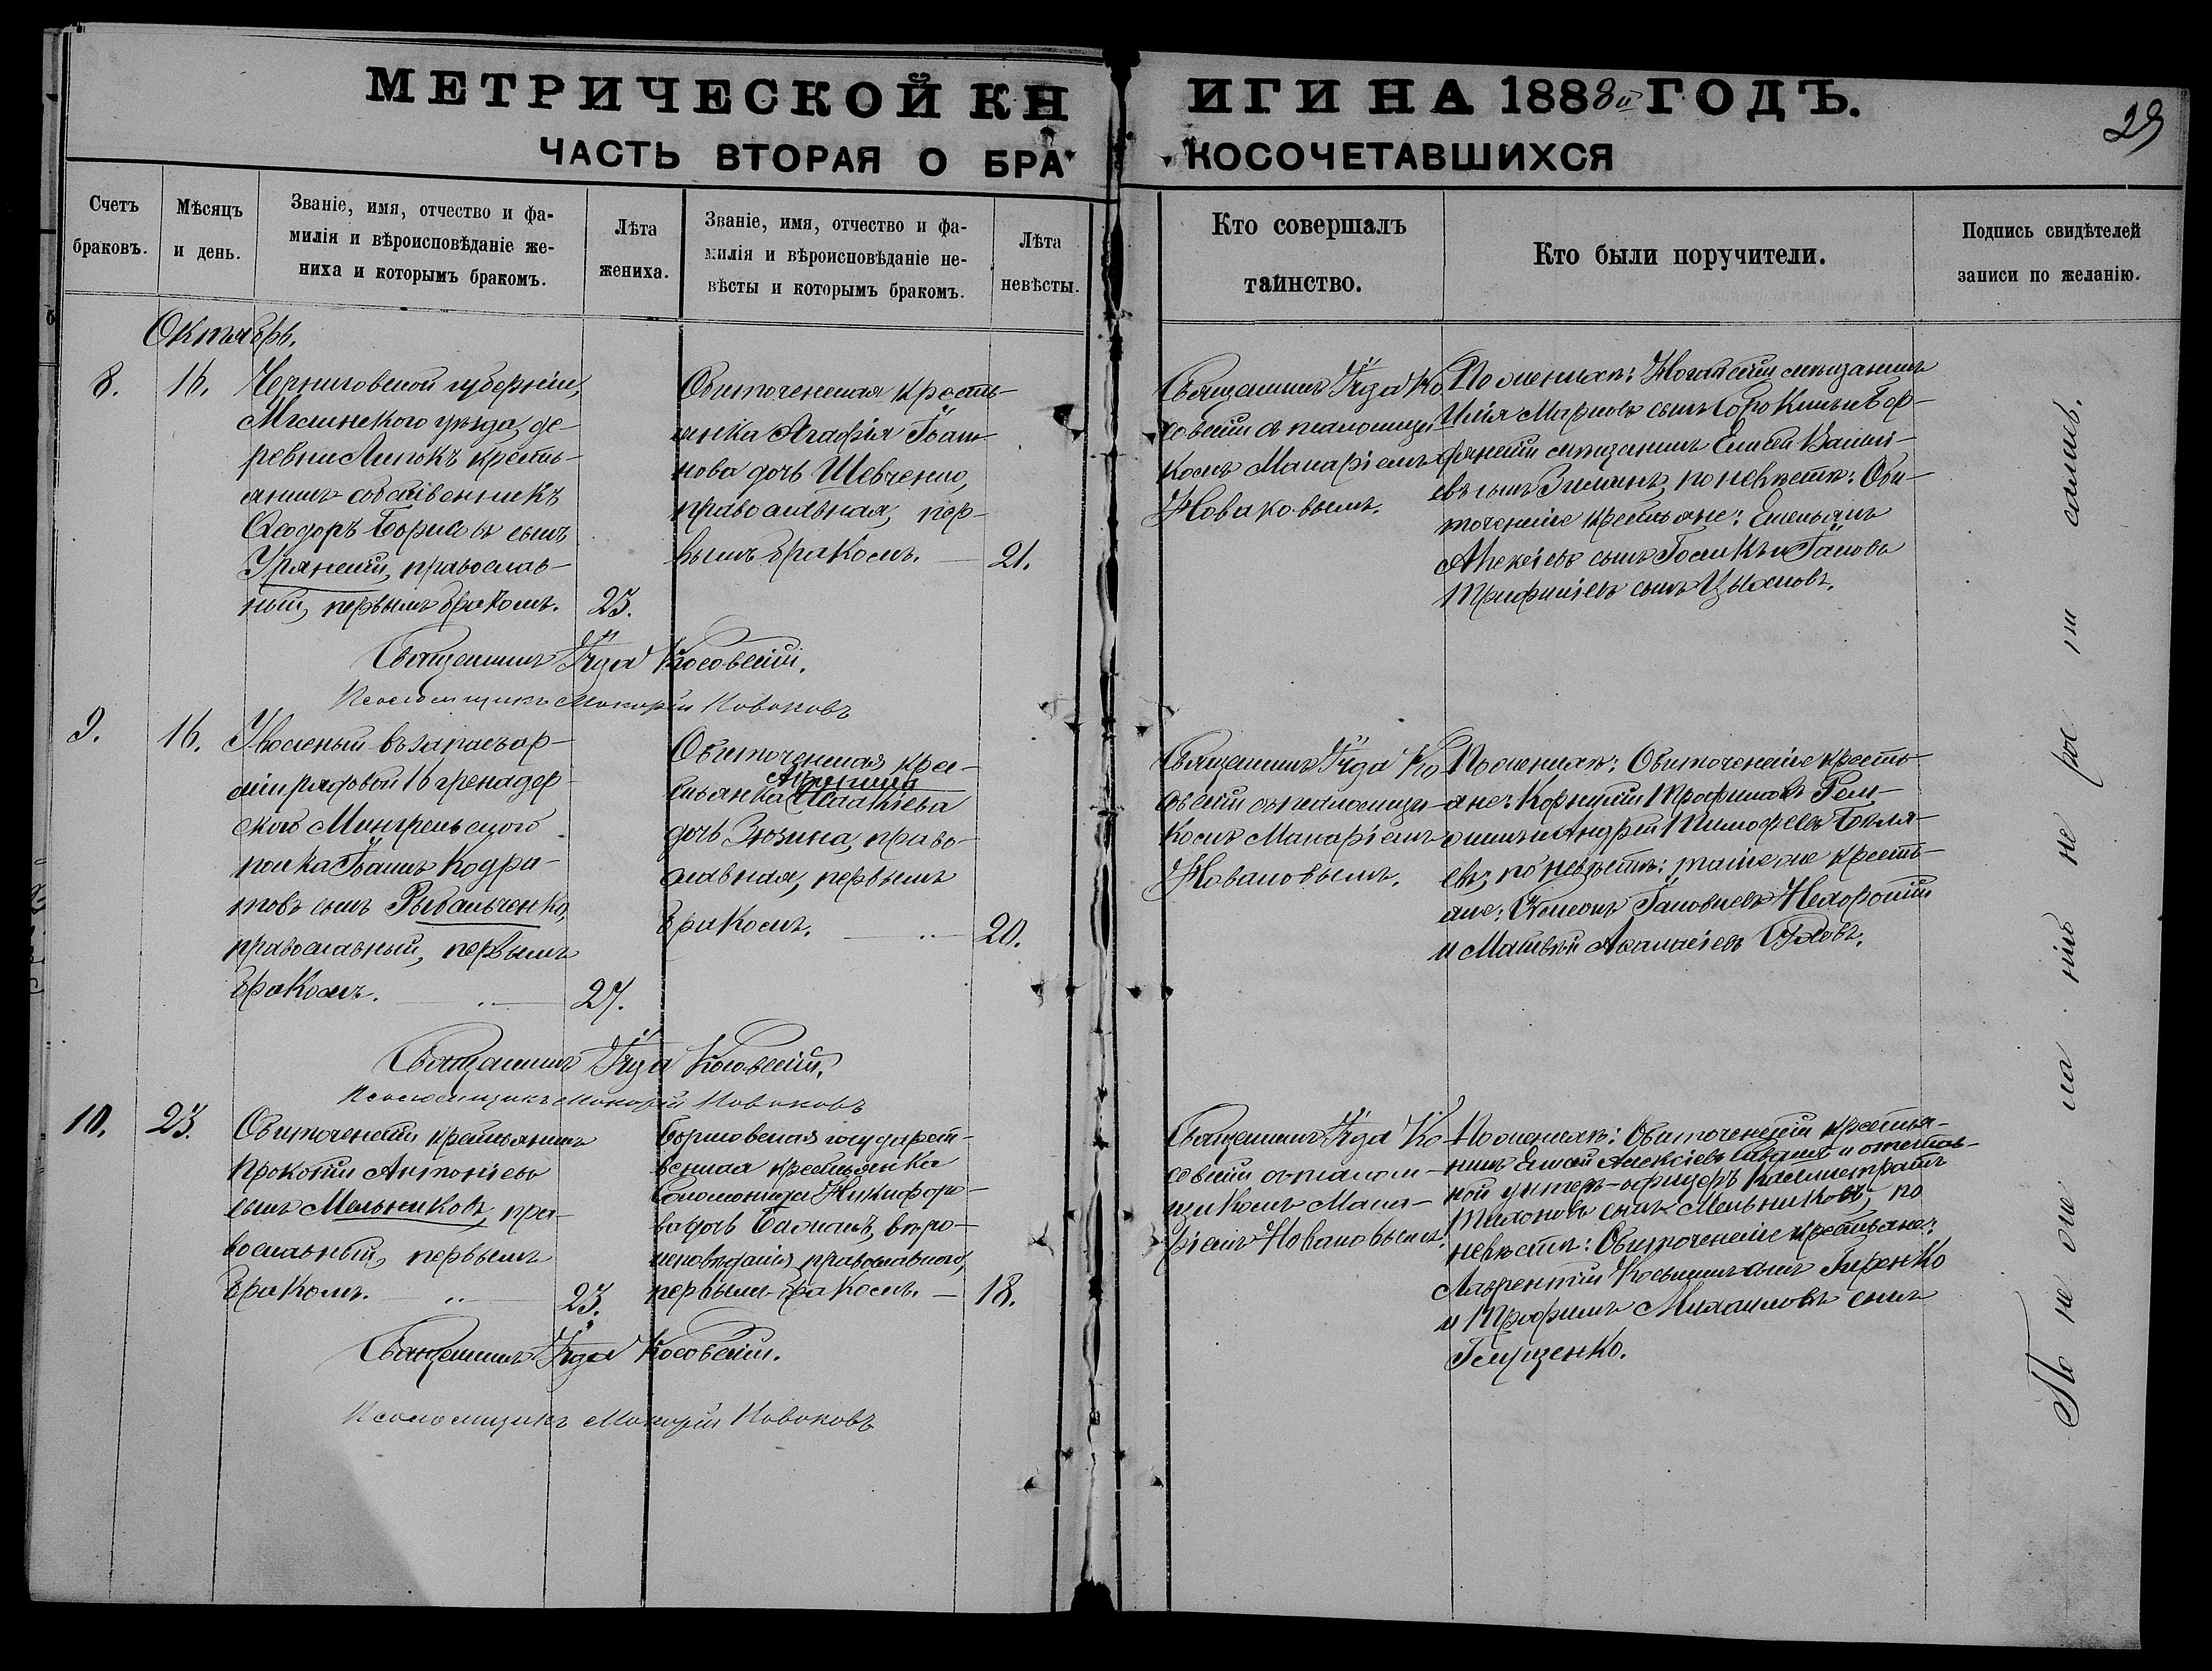 МЕТРИЧЕСКОЙ КНИГИ НА 1888й ГОДЪ.
29
ЧАСТЬ ВТОРАЯ О БРАКОСОЧЕТАВШИХСЯ
Счетъ браковъ.
Мѣсяцъ и день.
Званіе, имя, отчество и фа-
милія и вѣроисповѣданіе же-
ниха и которымъ бракомъ.
Лѣта жениха.
Званіе, имя, отчество и фа-
милія и вѣроисповѣданіе не-
вѣсты и которымъ бракомъ.
Лѣта невѣсты.
Кто совершалъ
таинство.
Кто были поручители.
Подпись свидѣтелей
записи по желанію.
Октябрь.
8.
16.
Черниговской губерніи,
Мглинскаго уѣзда, де-
ревни Липокъ кресть-
янинъ собственникъ
Ѳеодоръ Борисовъ сынъ
Урянскій, православ-
ный, первымъ бракомъ.
23.
Обиточенская кресть-
янка Агафія Іоан-
нова дочь Шевченко,
православная, пер-
вымъ бракомъ.
21.
Священникъ Іуда Ко-
совскій съ псаломщи-
комъ Макаріемъ
Новаковымъ.
По женихѣ: Ногайскій мѣщанинъ
Илія Марковъ сынъ Сорокинъ и Бер-
дянскій мѣщанинъ Елисей Васильи-
евъ сынъ Зиминъ, по невѣстѣ: Оби-
точенскіе крестьяне: Емельянъ
Алексіевъ сынъ Гомикъ и Іаковъ
Трифиліевъ сынъ Цыхновъ.
Священникъ Іуда Косовскій.
Псаломщикъ Макарій Новаковъ
9.
16.
Уволеный въ запасъ ар-
міи рядовой 16 гренадер-
скаго Мингрельскаго
полка Іоаннъ Кодра-
товъ сынъ Рыбальченко,
православный, первымъ
бракомъ.
27.
Обиточенская крес-
тьянка Исаакіева
дочь Зюзина, право-
славная, первымъ
бракомъ.
20.
Священникъ Іуда Ко-
совскій съ псаломщи-
комъ Макаріемъ
Новаковымъ.
По женихѣ: Обиточенскіе кресть-
яне: Корнилій Трофимовъ
и Андрей Тимофеевъ Бѣля-
евъ; по невѣстѣ: такіе же кресть-
яне: Іаковлевъ Нехорошій
и Матвѣй Аѳанасіевъ
Священникъ Іуда Косовскій.
Псаломщикъ Макарій Новаковъ
10.
23.
Обиточенскій крестьянинъ
Прокопій Антоніевъ
сынъ Мельниковъ, пра-
вославный, первымъ
бракомъ.
23.
государст-
венная крестьянка
Соломонида Никифоро-
ва дочь Балканъ, вѣро-
исповѣданія православнаго,
первымъ бракомъ.
18.
Священникъ Іуда Ко-
совскій съ псалом-
щикомъ Мака-
ріемъ Новаковымъ.
По женихѣ: Обиточенскій крестья-
нинъ Елисей Алексіевъ и отстав-
ной унтеръ-офицеръ Калистратъ
Тихоновъ сынъ Мельниковъ, по
невѣстѣ: Обиточенскіе крестьяне:
Лаврентій Косьминъ сынъ Гиренко
и Трофимъ Михаиловъ сынъ
Глущенко.
Священникъ Іуда Косовскій.
Псаломщикъ Макарій Новаковъ